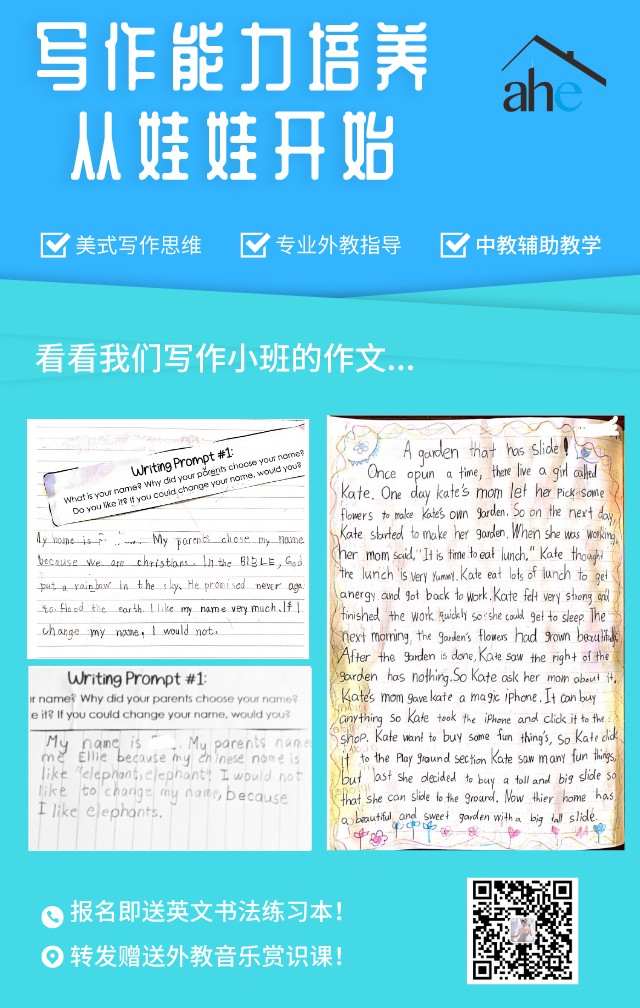 写作能力培养
从娃娃开始
ahe
美式写作思维
专业外教指导
中教辅助教学
看看我们写作小班的作文...
Writing Prompt #1:
What is your name? Why did your parents choose your name?
Do you like it? If you could change your name, would you?
My name is My parents chose my name
because we are christians. In the BIBLE, God
put a rainbow in the sky. He promised never aga
to flood the earth. I like my name very much. If I
change my name, I would not.
Writing Prompt #1:
r name? Why did your parents choose your name?
e it? If you could change your name, would you?
My name is My parents name
me Ellie because my chinese name is
like "elephant, elephant". I would not
like to change my name, because
I like elephants.
A garden that has slide!
Once opun a time, there live a girl called
Kate. One day kate's mom let her pick some
flowers to make Kate's own garden. So on the next day,
Kate started to make her garden. When she was working,
her mom said, "It is time to eat lunch." Kate thought
the lunch is very yummy. Kate eat lots of lunch to get
anergy and got back to work. Kate felt very strong and
finished the work quickly so she could get to sleep. The
next morning, the garden's flowers had grown beautifuly.
After the garden is done, Kate saw the right of the
garden has nothing. So Kate ask her mom about it,
Kate's mom gave kate a magic iphone. It can buy
anything so Kate took the iPhone and click it to the
shop. Kate want to buy some fun thing's, so Kate click
it to the Play ground section Kate saw many fun things,
but last she decided to buy a tall and big slide so
that she can slide to the ground. Now thier home has
a beautiful and sweet garden with a big tall slide.
报名即送英文书法练习本！
转发赠送外教音乐赏识课！